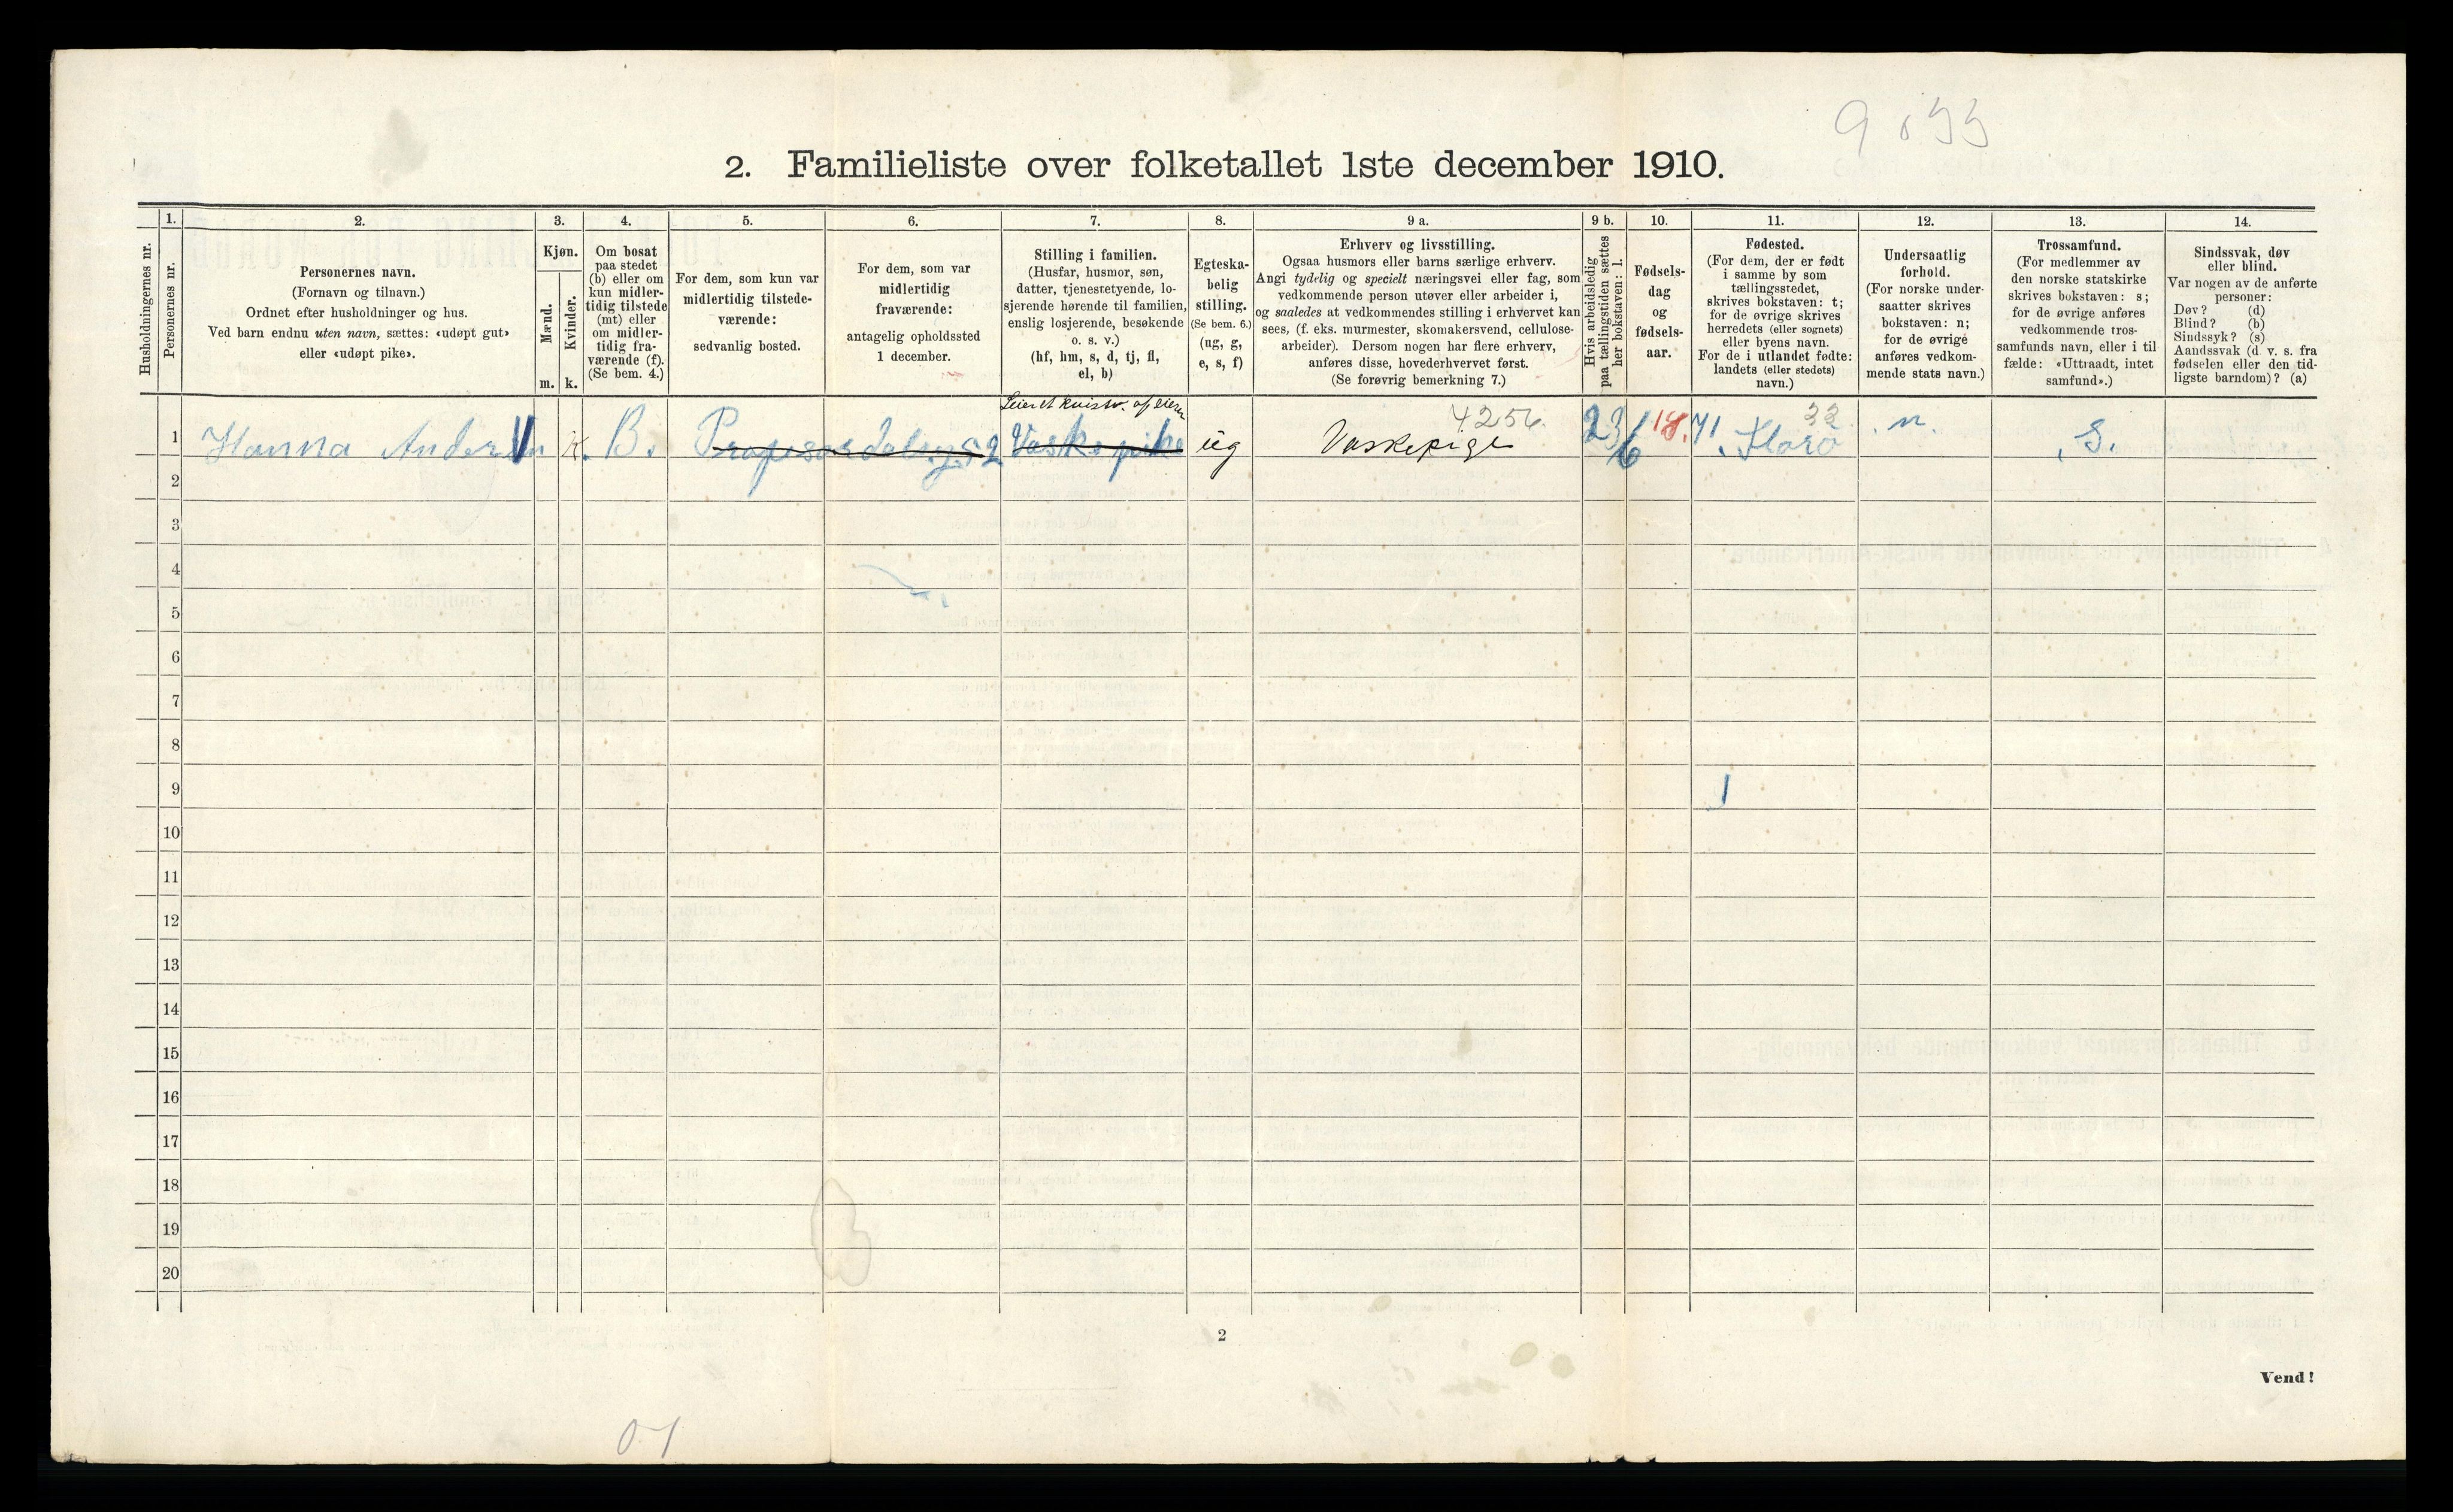 2. Familieliste over folketallet 1ste december 1910.
Husholdningernes nr.
1.
Personernes nr.
2.
Personernes navn.
(Fornavn og tilnavn.)
Ordnet efter husholdninger og hus.
Ved barn endnu uten navn, sættes: «udøpt gut»
eller «udøpt pike».
3.
Kjøn.
Mænd.
Kvinder.
m. k.
4.
Om bosat
paa stedet
(b) eller om
kun midler-
tidig tilstede
(mt) eller
om midler-
tidig fra-
værende (f).
(Se bem. 4.)
5.
For dem, som kun var
midlertidig tilstede-
værende:
sedvanlig bosted.
6.
For dem, som var
midlertidig
fraværende:
antagelig opholdssted
1 december.
7.
Stilling i familien.
(Husfar, husmor, søn,
datter, tjenestetyende, lo-
sjerende hørende til familien,
enslig losjerende, besøkende
o. s. v.)
(hf, hm, s, d, tj, fl,
el, b)
8.
Egteska-
belig
stilling.
(Se bem. 6.)
(ug, g,
e, s, f)
9 a.
Erhverv og livsstilling.
Ogsaa husmors eller barns særlige erhverv.
Angi tydelig og specielt næringsvei eller fag, som
vedkommende person utøver eller arbeider i,
og saaledes at vedkommendes stilling i erhvervet kan
sees, (f. eks. murmester, skomakersvend, cellulose-
arbeider). Dersom nogen har flere erhverv,
anføres disse, hovederhvervet først.
(Se forøvrig bemerkning 7.)
9 b.
Hvis arbeidsledig
paa tællingstiden sættes
her bokstaven: l.
10.
Fødsels-
dag
og
fødsels-
aar.
11.
Fødested.
(For dem, der er født
i samme by som
tællingsstedet,
skrives bokstaven: t;
for de øvrige skrives
herredets (eller sognets)
eller byens navn.
For de i utlandet fødte:
landets (eller stedets)
navn.)
12.
Undersaatlig
forhold.
(For norske under-
saatter skrives
bokstaven: n;
for de øvrige
anføres vedkom-
mende stats navn.)
13.
Trossamfund.
(For medlemmer av
den norske statskirke
skrives bokstaven: s;
for de øvrige anføres
vedkommende tros-
samfunds navn, eller i til
fælde: «Uttraadt, intet
samfund».)
14.
Sindssvak, døv
eller blind.
Var nogen av de anførte
personer:
Døv? (d)
Blind? (b)
Sindssyk? (s)
Aandssvak (d. v. s. fra
fødselen eller den tid-
ligste barndom)? (a)
Leiet kvistv. af eieren
4256. 22
1 Hanna Andersen K. B. Vaskepike ug Vaskepige 23/6 18.71 Florø n. S.
2
3
4
5
6
7
8
9
10
11
12
13
14
15
16
17
18
19
20
2
Vend!
01